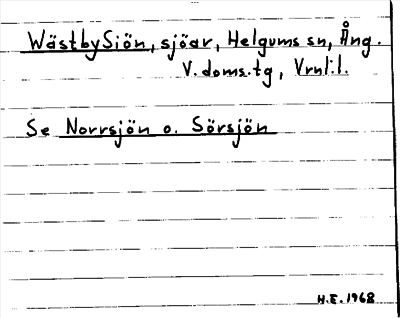 WästbySiön, sjöar, Helgums sn, Ång.
V. doms.tg, Vrnl:l.
Se Norrsjön o. Sörsjön
H.E. 1968